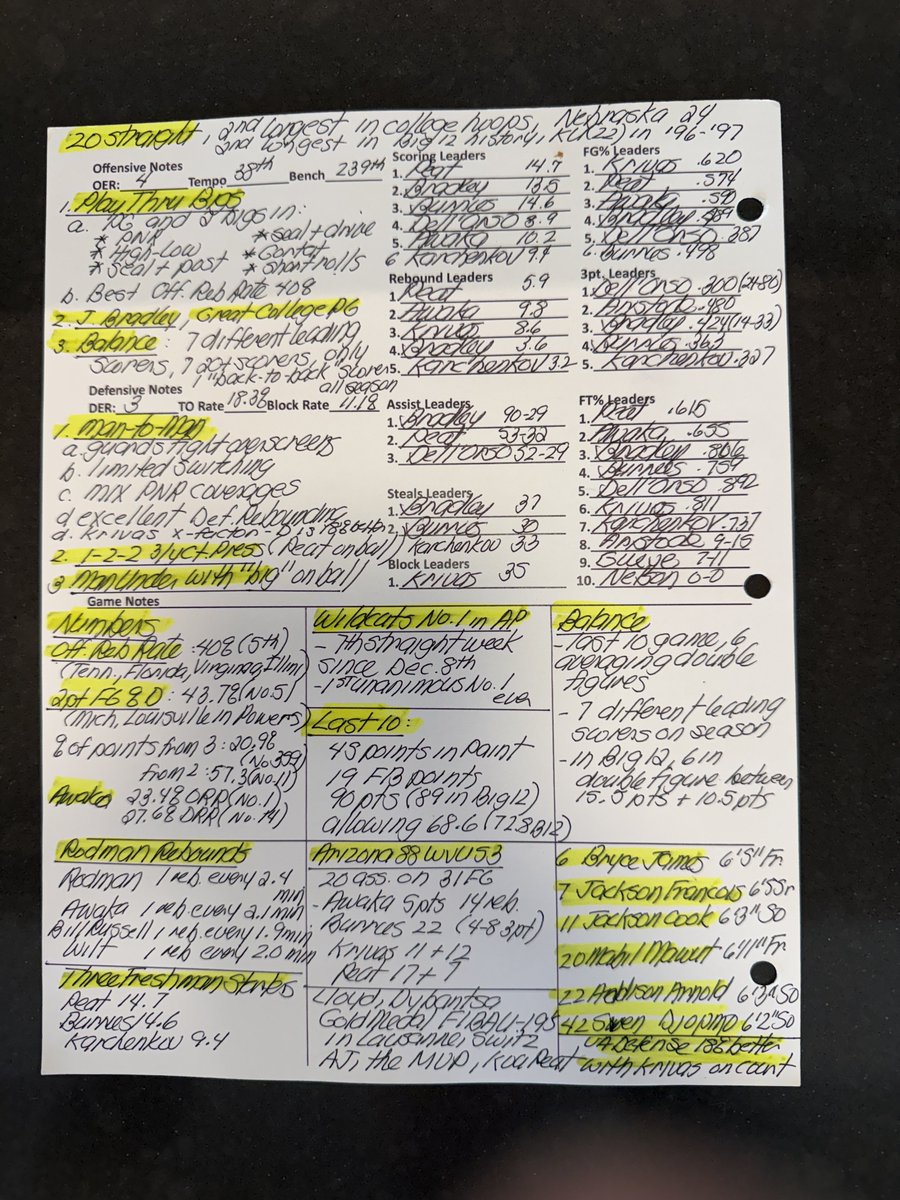 20 straight, 2nd longest in college hoops, Nebraska 24
2nd longest in Big 12 history, KU(22) in '96-'97
Offensive Notes
OER: 4 Tempo 38th Bench 239th
1. Play Thru Bigs
a. PG and 2 bigs in:
* PNR * seal + drive
* High-Low
* seal + post * short rolls
b. Best Off. Reb Rate 408
2. J. Bradley, Great College PG
3. Balance: 7 different leading
scorers, 7 20+ scorers, only
1 "back-to-back" scorers
all season
Defensive Notes
DER: 3 TO Rate 18.3% Block Rate
1. Man-to-Man
a. guards fight over screens
b. limited switching
c. mix PNR coverages
d. excellent Def. Rebounding
d. Krivas x-factor
2. 1-2-2 3/4 ct. Press (Peat on ball)
3 Man Under with "big" on ball
Scoring Leaders
1. Peat 14.7
2. Bradley 13.5
3. Burries 14.6
4. Dell'Orso 8.9
5. Awaka 10.2
6 Karchenkov 9.4
Rebound Leaders
1. Peat 5.9
2. Awaka 9.8
3. Krivas 8.6
4. Bradley 3.6
5. Karchenkov 3.2
Assist Leaders
1. Bradley 90-29
2. Peat 53-32
3. Dell'Orso 52-29
Steals Leaders
1. Bradley 37
2. Burries 30
Karchenkov 33
Block Leaders
1. Krivas 35
FG% Leaders
1. Krivas .620
2. Peat .574
3. Awaka
4. Bradley
5. Dell'Orso .387
6. Burries .498
3pt. Leaders
1. Dell'Orso .300 (24-80)
2. Aristode .480
3. Bradley .424 (14-33)
4. Burries .363
5. Karchenkov .327
FT% Leaders
1. Peat .615
2. Awaka .655
3. Bradley
4. Burries .759
5. Dell'Orso .892
6. Krivas .811
7. Karchenkov .737
8. Aristode 9-15
9. Gueye 7-11
10. Nelson 0-0
Game Notes
Numbers
Off Reb Rate: 408 (5th)
(Tenn., Florida, Virginia, Illini)
2pt FG % D: 43.7% (No. 5)
(Mich, Louisville in Powers)
% of points from 3: 20.9%
(No 359)
from 2: 57.3 (No. 11)
Awaka 23.4% ORR (No. 1)
27.6% DRR (No. 14)
Wildcats No. 1 in AP
- 7th straight week
since Dec. 8th
- 1st unanimous No. 1
ever
Last 10:
43 points in Paint
19 FB points
90 pts (89 in Big 12)
allowing 68.6 (72.8 B12)
Balance
- last 10 game, 6
averaging double
figures
- 7 different leading
scorers on season
- in Big 12, 6 in
double figure between
15.5 pts + 10.5 pts
Rodman Rebounds
Rodman 1 reb. every 2.4
min
Awaka 1 reb. every 2.1 min
Bill Russell 1 reb. every 1.9 min
Wilt 1 reb every 2.0 min
Three Freshman Starters
Peat 14.7
Burries 14.6
Karchenkov 9.4
Arizona 88 WVU 53
20 ass. on 31 FG
- Awaka 5 pts 14 reb.
Burries 22 (4-8 3pt)
Krivas 11 + 12
Peat 17 + 7
Lloyd, Dybantsa
Gold Medal FIBA U-19s
in Lausanne, Switz
AJ, the MVP, Koa Peat
6 Bryce James 6'5" Fr
7 Jackson Francois 6'5 Sr
11 Jackson Cook 6'3" So
20 Mabil Mawut 6'11" Fr
22 Addison Arnold 6'3" So
42 Sven Djopmo 6'2" So
UA Defense 18% better
with Krivas on court